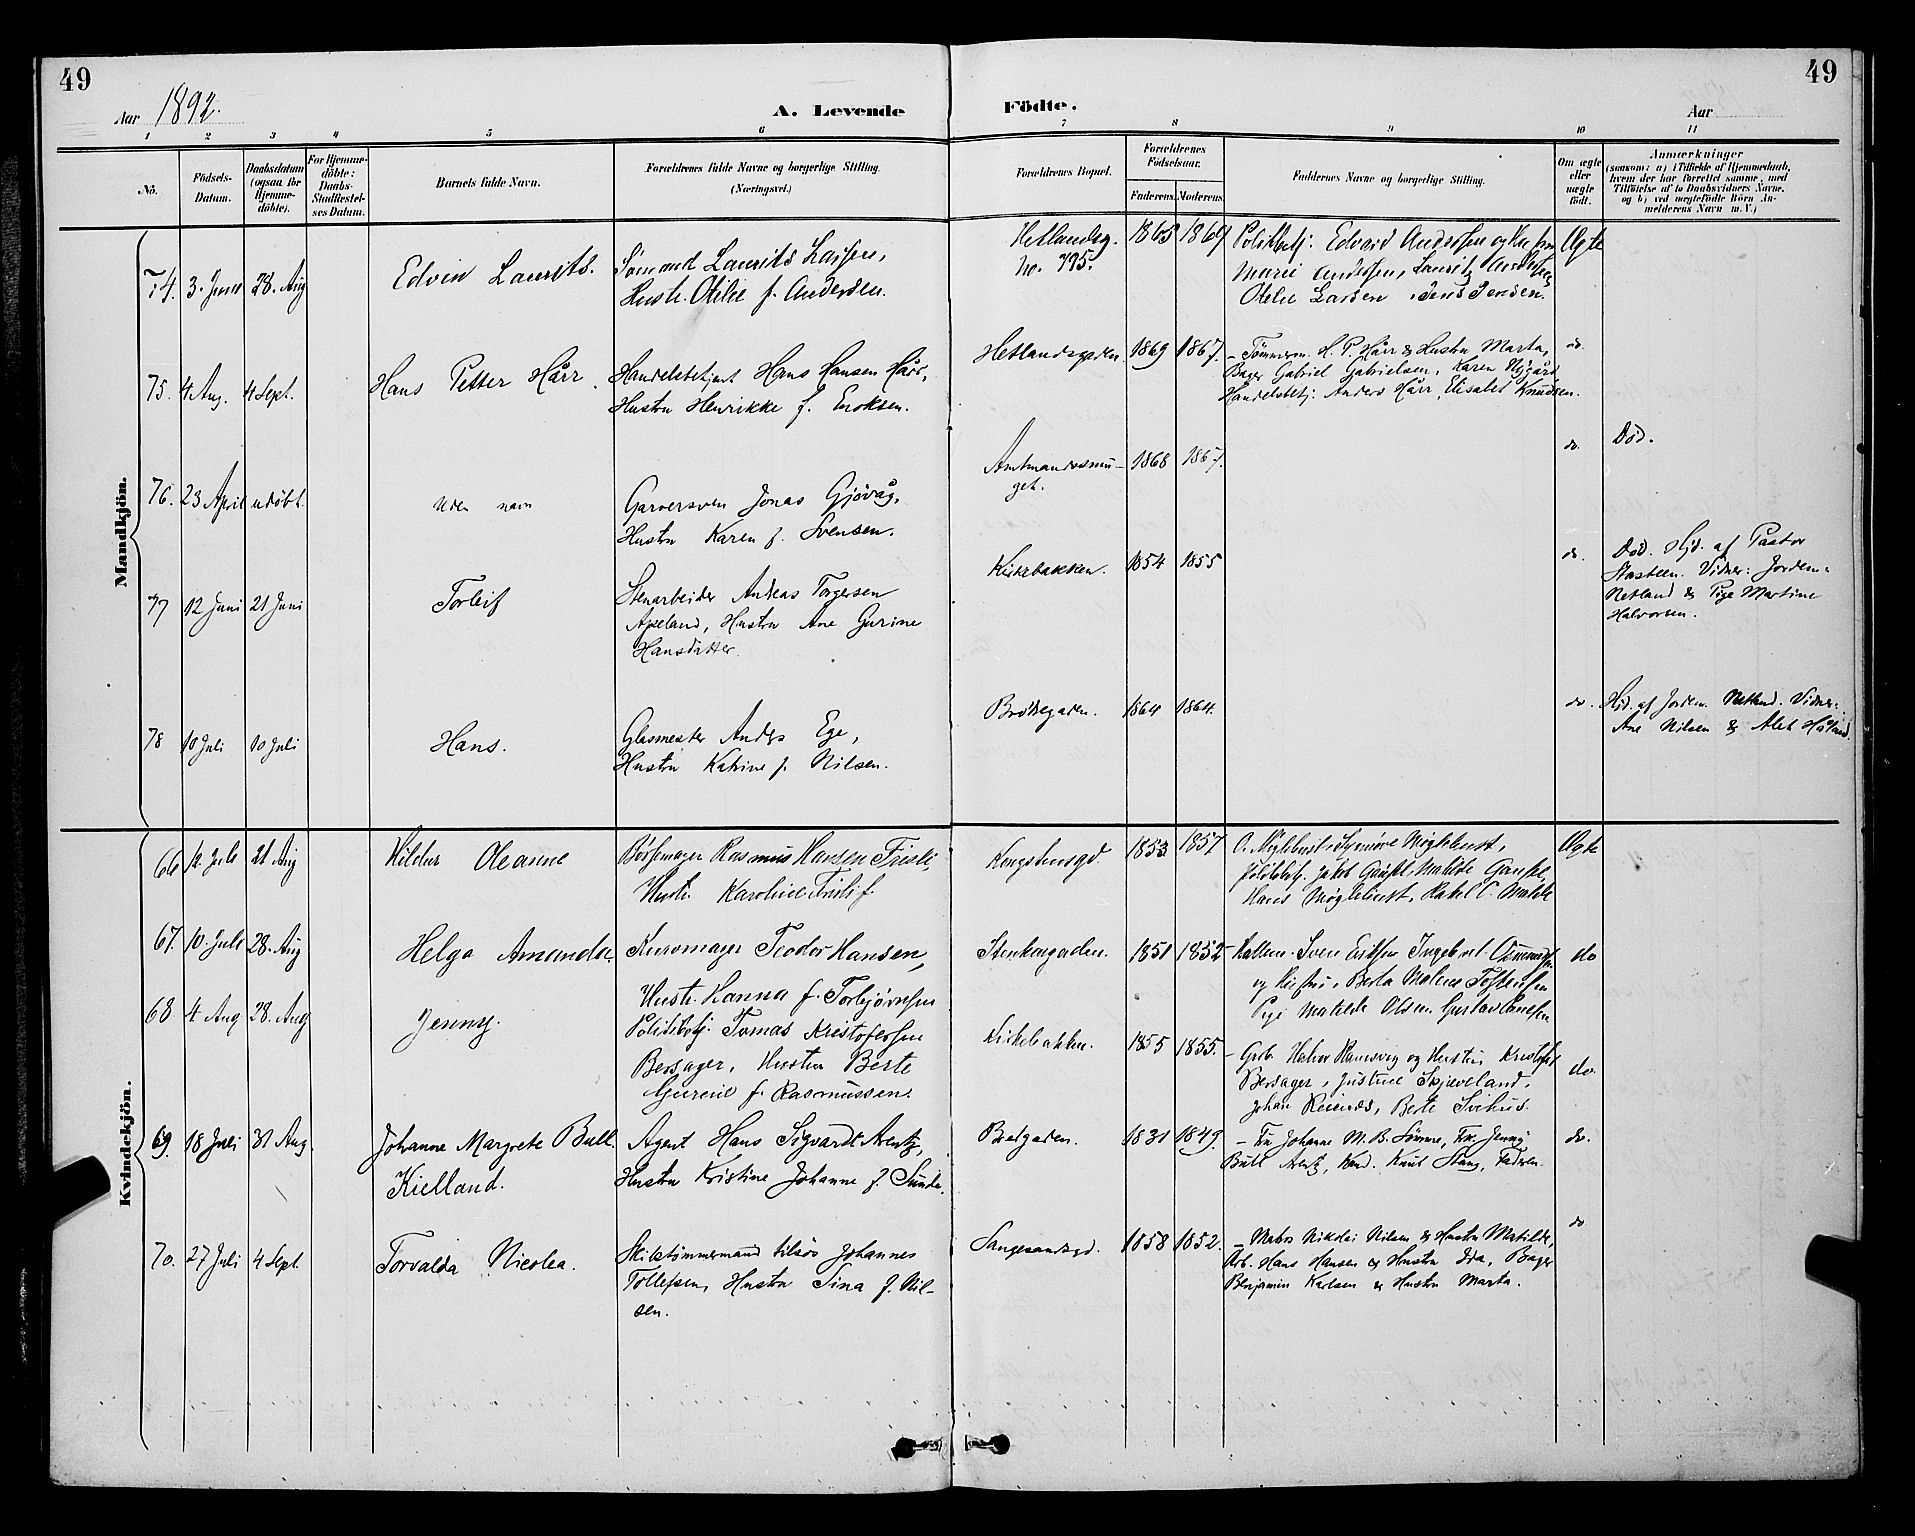 49
49
Aar 1892.
A. Levende Födte.
Aar
1 2 3 4 5 6 7 8 9 10 11
No.
Födsels-Datum.
Daabsdatum (ogsaa for Hjemmedöbte).
For Hjemmedöbte: Daabs-Stadfæstelses Datum.
Barnets fulde Navn.
Forældrenes fulde Navne og borgerlige Stilling. (Næringsvei.)
Forældrenes Bopæl.
Forældrenes Födselsaar.
Faderens. Moderens.
Faddernes Navne og borgerlige Stilling.
Om ægte eller uægte födt.
Anmærkninger
(saasom: a) i Tilfælde af Hjemmedaab, hvem der har forrettet samme, med Tilföielse af to Daabsvidners Navne, og b) ved uægtefödte Börn Anmelderens Navn m. V.)
Mandkjön.
74. 3. Juni 28. Aug Edvin Laurits.
Sømand Laurits
Hustr. Otilie f. Andersen.
Hetlandsg. No. 795.
1865 1869
Politibetj. Edvard Andersen og Hustru
Marie Andersen, Lauritz Andersen
Otelie Larsen, Jens Jensen.
Ægte
75. 4 Aug. 4 Sept. Hans Petter Hårr.
Handelsbetjent Hans Hansen Hårr,
Hustru Henrikke f. Enoksen.
Hetlandsgaden. 1869 1867.
– Tømmerm. H. P. Hårr & Hustru Marta,
Bager Gabriel Gabrielsen, Karen
Handelsbetj. Anders Hårr, Elisabet Knudsen.
do.
76. 23 April udøbt. Uden navn
Garversven Jonas Gjøvåg,
Hustru Karen f. Svensen.
Amtmandssmuget. 1868 1867.
do. Død.
77 12 Juni 21 Juni Torleif
Stenarbeider Andreas Torgersen
Apeland, Hustru Ane Gurine
Hansdatter.
Kirkebakken. 1854 1855
do. Død. Hjd. af Pastor
Vidner: Jordem.
Netland & Pige Martine
Halvorsen.
78 10 Juli 10 Juli Hans.
Glasmester Anders Ege,
Hustru Katrine f. Nilsen.
Brødregaden. 1864 1864.
do. Hjd. af Jordem. Netland. Vidner:
Ane Nilsen & Alet Håland.
Kvindekjön.
66 12. Juli 21 Aug Hildur Oleanne
Børsemager Rasmus Hansen
Hustr. Karoline f.
Kongstensgd 1853 1857
Politibetj. Jakob Gausel, Matilde Gausel,
Ægte
67. 10. Juli 28. Aug Helga Amanda.
Kurvmager Teodor Hansen,
Hustr. Hanna f. Torbjørnsen
Stenkargaden. 1851 1852
og Hustru, Berta Malene
Pige Matilde Olsen,
do
68 4 Aug 28. Aug Jenny.
Politibetj. Tomas Kristofersen
Bersager, Hustru Berte
Gurine f. Rasmussen.
Kirkebakken. 1855 1855.
– og Hustru, Kristofer
Bersager, Justine Skjeveland,
Johan Berte
do.
69. 18 Juli 31 Aug. Johanne Margrete Bull Kielland.
Agent Hans Sigvardt Arentz,
Hustru Kristine Johanne f. Sunde.
Bredgaden. 1831 1849.
– Fru Johanne M. B. Sømme, Frk. Jenny
Bull Arentz, Kand. Knut Stang, Faderen.
do.
70. 27 Juli 4 Sept. Torvalda Nicolea.
Skibstømmermand tilsøs Johannes
Tollefsen, Hustru Sina f. Nilsen.
Langesandsgd. 1858 1852.
– Matros Nikolai Nilsen & Hustru Matilde,
Arb. Hans Hansen & Hustru Ida, Bager
Benjamin Karlsen & Hustru Marta.
do